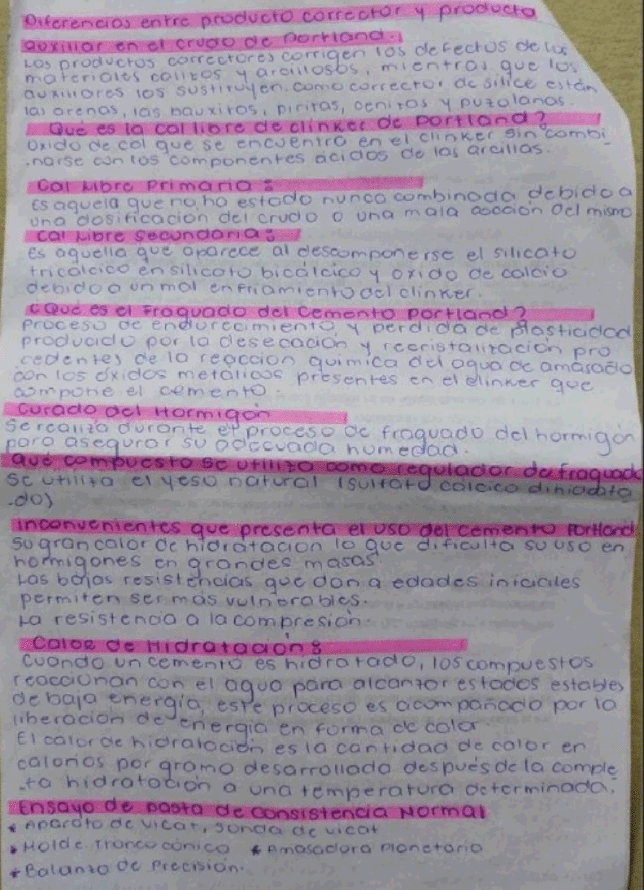 Diferencias entre producto corrector y producto
auxiliar en el crudo de Portland.
Los productos correctores corrigen los defectos de los
materiales calizos y arcillosos, mientras que los
auxiliares los sustituyen. como corrector de silice están
las arenas, las bauxitas, piritas, cenizas y puzolanas.
Que es la cal libre de clinker de portland?
oxido de cal que se encuentra en el clinker sin combi
narse con los componentes acidos de las arcillas.
Cal Libre Primaria:
Es aquella que no ha estado nunca combinada debido a
una dosificacion del crudo o una mala cocción del mismo
Cal Libre Secundaria:
Es aquella que aparece al descomponerse el silicato
tricálcico en silicato bicálcico y oxido de calcio
debido a un mal enfriamiento del clinker.
¿Que es el Fraguado del Cemento Portland?
Proceso de endurecimiento y perdida de plasticidad
producido por la desecación y recristalización pro
cedentes de la reaccion quimica del agua de amasado
con los óxidos metálicos presentes en el clinker que
compone el cemento.
Curado del Hormigon
Se realiza durante el proceso de fraguado del hormigón
para asegurar su adecuada humedad.
Que compuesto se utiliza como regulador de fraguado
Se utiliza el yeso natural (sulfato cálcico dihidrata
.do)
Inconvenientes que presenta el uso del cemento Portland
Su gran calor de hidratacion lo que dificulta su uso en
hormigones en grandes masas
Las bajas resistencias que dan a edades iniciales
permiten ser mas vulnerables.
La resistencia a la compresión.
Calor de Hidratación:
Cuando un cemento es hidratado, los compuestos
reaccionan con el agua para alcanzar estados estables
de baja energía, este proceso es acompañado por la
liberación de energia en forma de calor
El calor de hidratación es la cantidad de calor en
calorios por gramo desarrollada después de la comple
.ta hidratación a una temperatura determinada.
Ensayo de pasta de consistencia Normal
* Aparato de vicat, sonda de vicat
* Molde Tronco cónico * Amasadora planetaria
* Balanza de Precisión.